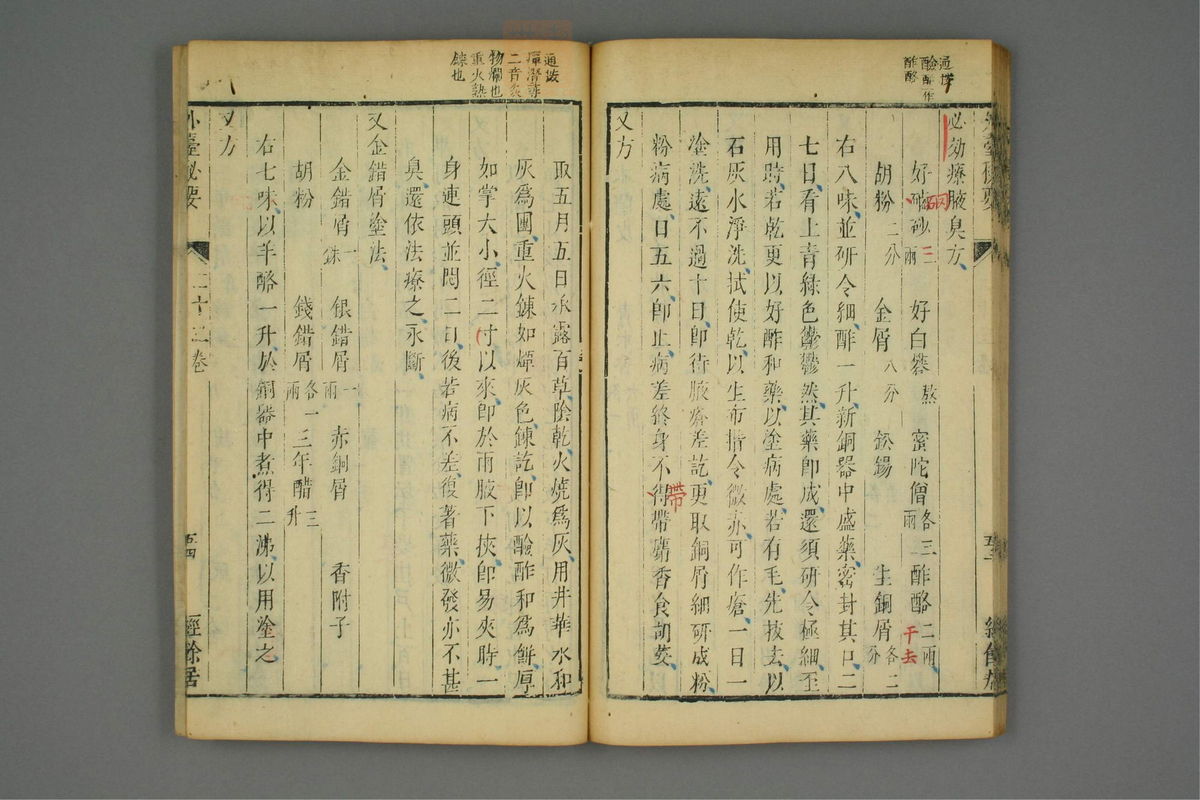 必効療腋臭方
好硇砂 二兩 好白礬 熬 蜜陀僧 各三兩 酢酪 二兩
胡粉 二分 金屑 八分 鈆錫 生銅屑 各二分
右八味並研令細酢一升新銅器中盛藥密封其口二
七日看上青綠色鬱鬱然其藥卽成還須研令極細至
用時若乾更以好酢和藥以塗病處若有毛先拔去以
石灰水淨洗拭使乾以生布揩令微赤可作瘡一日一
塗洗遠不過十日卽待腋瘡差訖更取銅屑細研成粉
粉病處日五六卽止病差終身不得帶麝香食胡荽
帶
干去
又方
外臺秘要 二十三卷 五四 經餘居
取五月五日承露百草陰乾火燒爲灰用井華水和
灰爲團重火鍊如燺灰色鍊訖卽以醶酢和爲餠厚
如掌大小徑二寸以來卽於兩腋下挾卽易夾時一
身連頭並悶二日後若病不差復著藥微發亦不甚
臭還依法療之永斷
又金錯屑塗法
金錯屑 一銖 銀錯屑 一兩 赤銅屑 香附子
胡粉 錢錯屑 各一兩 三年醋 三升
右七味以羊酪一升於銅器中煮得二沸以用塗之
又方